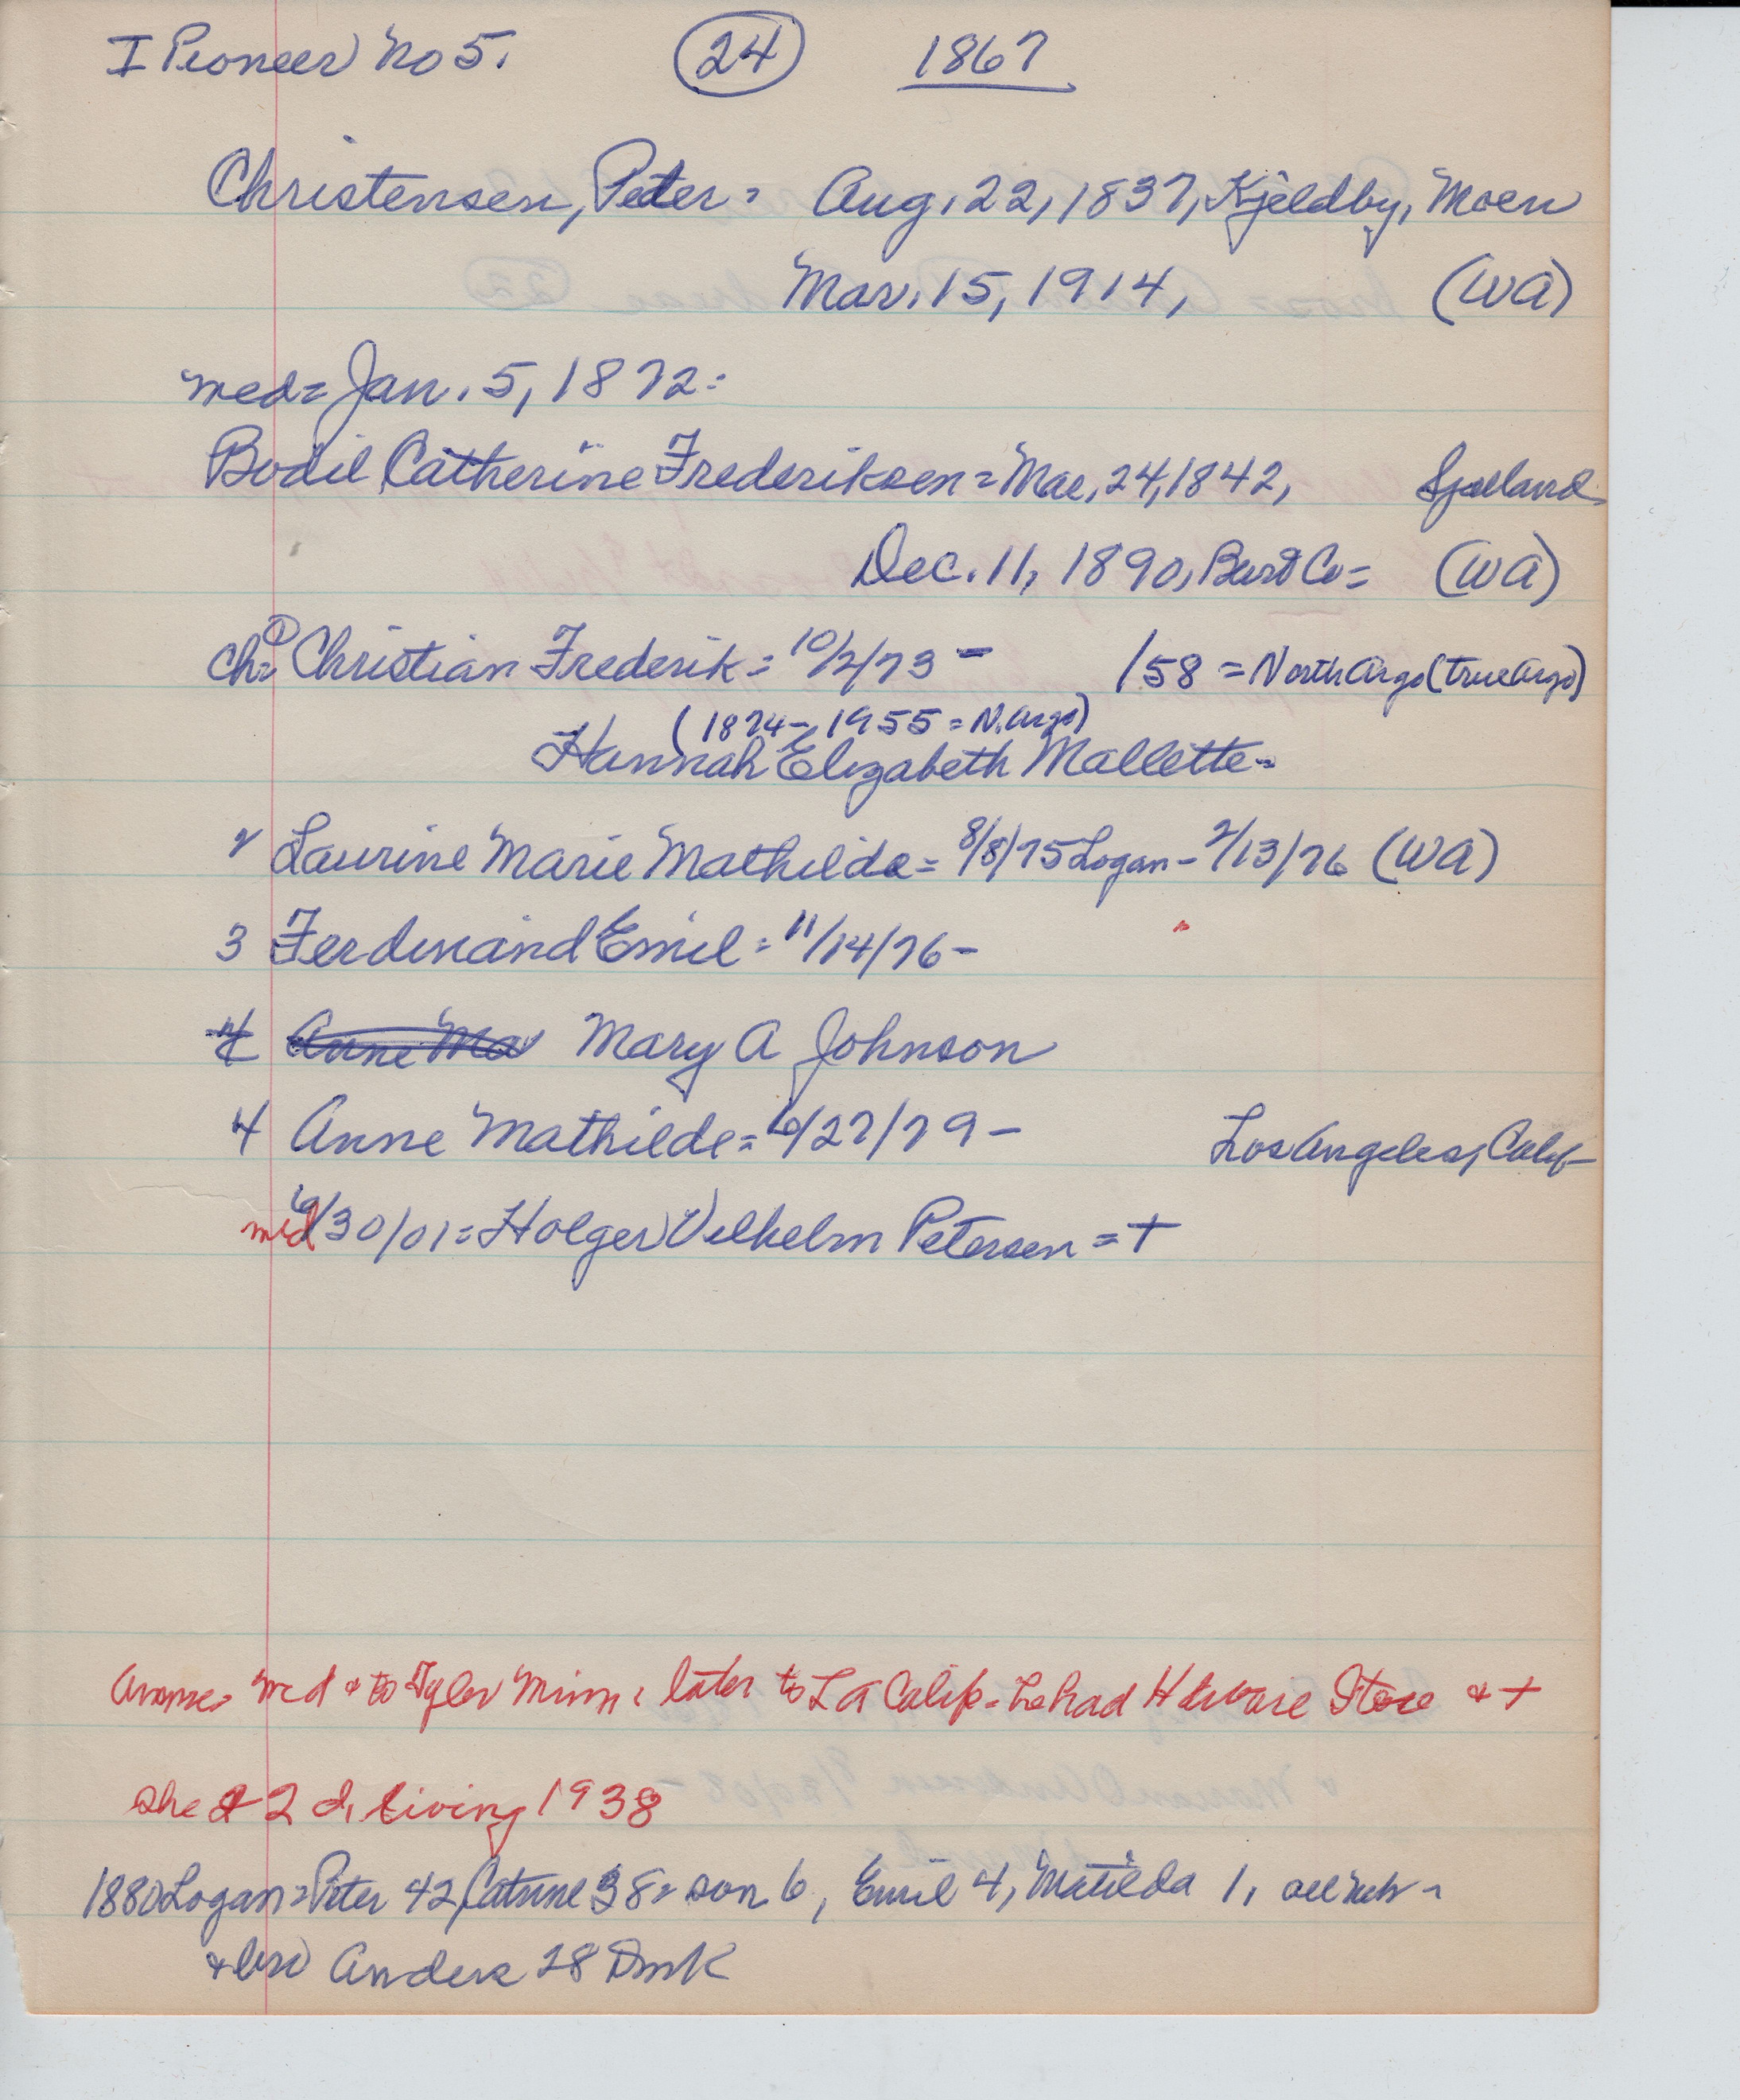 I Pioneer No 5. (24) 1867
Christensen, Peter = Aug. 22, 1837, Kjeldby, Moen
Mar. 15, 1914, (WA)
med = Jan. 5, 1872 =
Bodil Catherine Frederiksen = Mar, 24, 1842, Sjælland
Dec. 11, 1890, Burt Co = (WA)
ch = 1 Christian Frederik = 10/2/73 - /58 = North Argo (True Argo)
(1874 - 1955 = N. Argo)
Hannah Elizabeth Mallette -
2 Laurine Marie Mathilde = 8/8/75 Logan - 2/13/76 (WA)
3 Ferdinand Emil = 11/14/76 -
4 Anne Ma Mary A Johnson
4 Anne Mathilde = 6/27/79 - Los Angeles, Calif
med 6/30/01 = Holger Vilhelm Petersen = +
Anne = med & to Tyler Minn, later to LA Calif = he had Hdware Store & +
she & 2 d, living 1938
1880 Logan = Peter 42, Catrine 38 = son 6, Emil 4, Matilda 1, all neb -
& bro Anders 28 Dmk